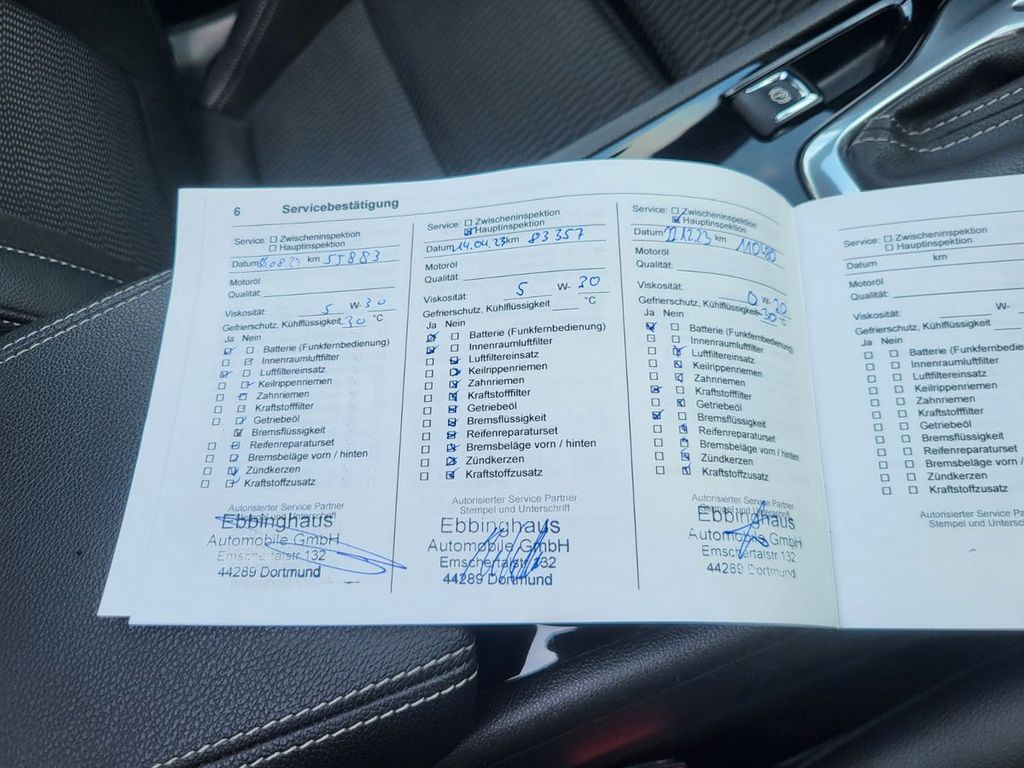 6 Servicebestätigung
Service: ☐ Zwischeninspektion
☐ Hauptinspektion
km 55883
Motoröl
Qualität:
Viskosität: 5 W- 30
Gefrierschutz, Kühlflüssigkeit 30 °C
Ja Nein
Batterie (Funkfernbedienung)
Innenraumluftfilter
Luftfiltereinsatz
Keilrippenriemen
Zahnriemen
Kraftstofffilter
Getriebeöl
Bremsflüssigkeit
Reifenreparaturset
Bremsbeläge vorn / hinten
Zündkerzen
Kraftstoffzusatz
Autorisierter Service Partner
Stempel und Unterschrift
Ebbinghaus
Automobile GmbH
Emschertalstr 132
44289 Dortmund
Service: ☐ Zwischeninspektion
☒ Hauptinspektion
Datum 14.04.23 km 83357
Motoröl
Qualität:
Viskosität: 5 W- 30
Gefrierschutz, Kühlflüssigkeit °C
Ja Nein
Batterie (Funkfernbedienung)
Innenraumluftfilter
Luftfiltereinsatz
Keilrippenriemen
Zahnriemen
Kraftstofffilter
Getriebeöl
Bremsflüssigkeit
Reifenreparaturset
Bremsbeläge vorn / hinten
Zündkerzen
Kraftstoffzusatz
Autorisierter Service Partner
Stempel und Unterschrift
Ebbinghaus
Automobile GmbH
Emschertalstr 132
44289 Dortmund
Service: ☐ Zwischeninspektion
☒ Hauptinspektion
Datum km 110480
Motoröl
Qualität:
Viskosität: 0 W- 20
Gefrierschutz, Kühlflüssigkeit -30 °C
Ja Nein
Batterie (Funkfernbedienung)
Innenraumluftfilter
Luftfiltereinsatz
Keilrippenriemen
Zahnriemen
Kraftstofffilter
Getriebeöl
Bremsflüssigkeit
Reifenreparaturset
Bremsbeläge vorn / hinten
Zündkerzen
Kraftstoffzusatz
Autorisierter Service Partner
Stempel und Unterschrift
Ebbinghaus
Automobile GmbH
Emschertalstr 132
44289 Dortmund
Service: ☐ Zwischeninspektion
☐ Hauptinspektion
Datum km
Motoröl
Qualität:
Viskosität: W-
Gefrierschutz, Kühlflüssigkeit
Ja Nein
Batterie (Funkfernbedie
Innenraumluftfilter
Luftfiltereinsatz
Keilrippenriemen
Zahnriemen
Kraftstofffilter
Getriebeöl
Bremsflüssigkeit
Reifenreparaturset
Bremsbeläge vorn /
Zündkerzen
Kraftstoffzusatz
Autorisierter Service Pa
Stempel und Unterschr